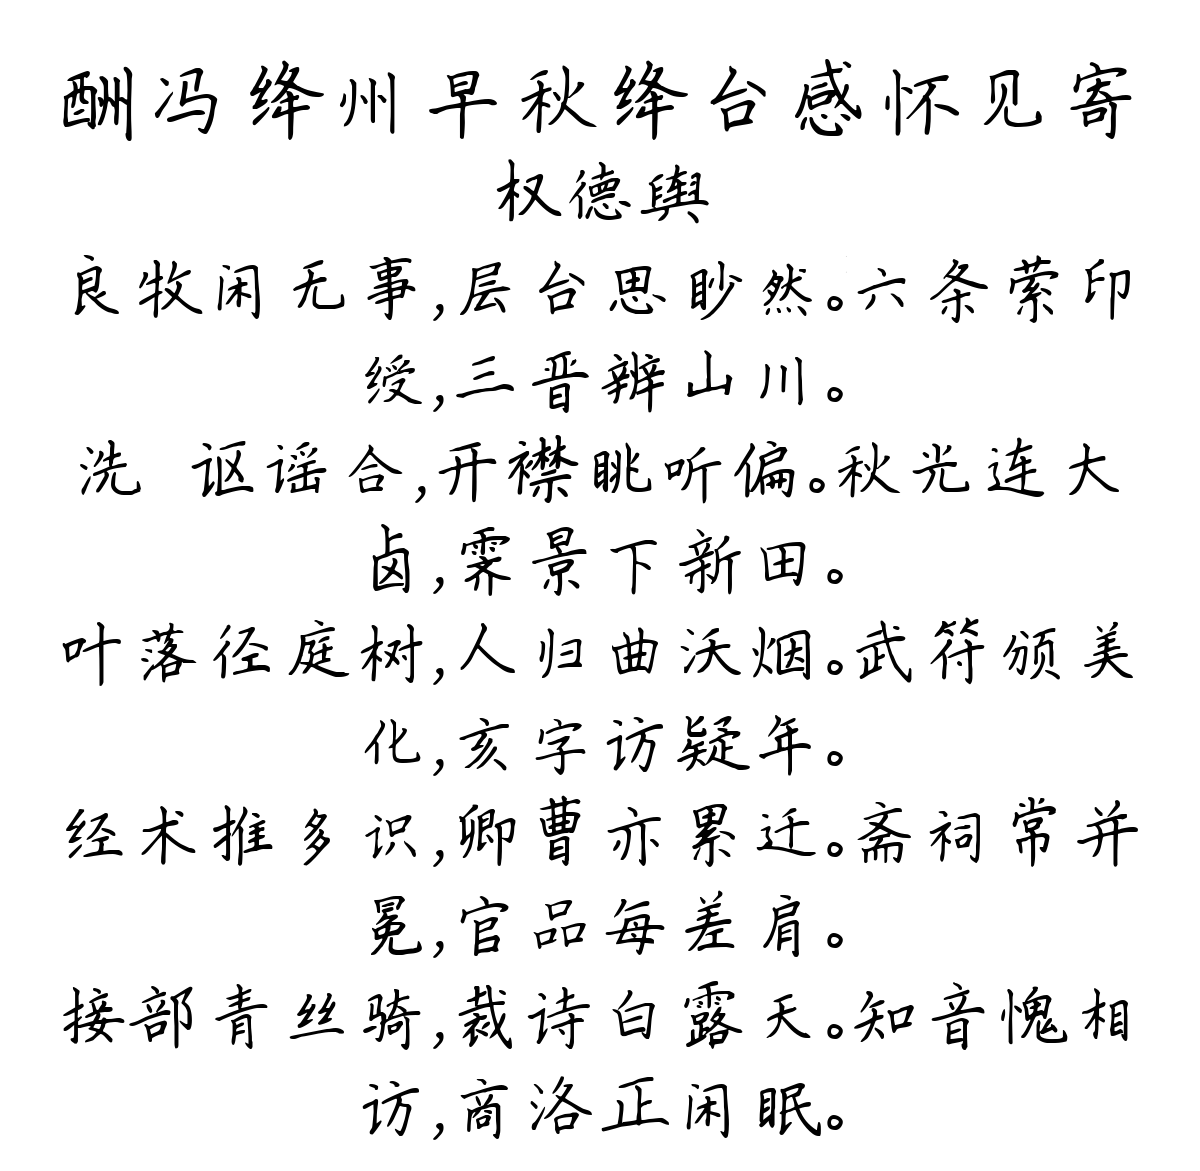 酬冯绛州早秋绛台感怀见寄
权德舆
良牧闲无事,层台思眇然。六条萦印
绶,三晋辨山川。
洗 讴谣合,开襟眺听偏。秋光连大
卤,霁景下新田。
叶落径庭树,人归曲沃烟。武符颁美
化,亥字访疑年。
经术推多识,卿曹亦累迁。斋祠常并
冕,官品每差肩。
接部青丝骑,裁诗白露天。知音愧相
访,商洛正闲眠。